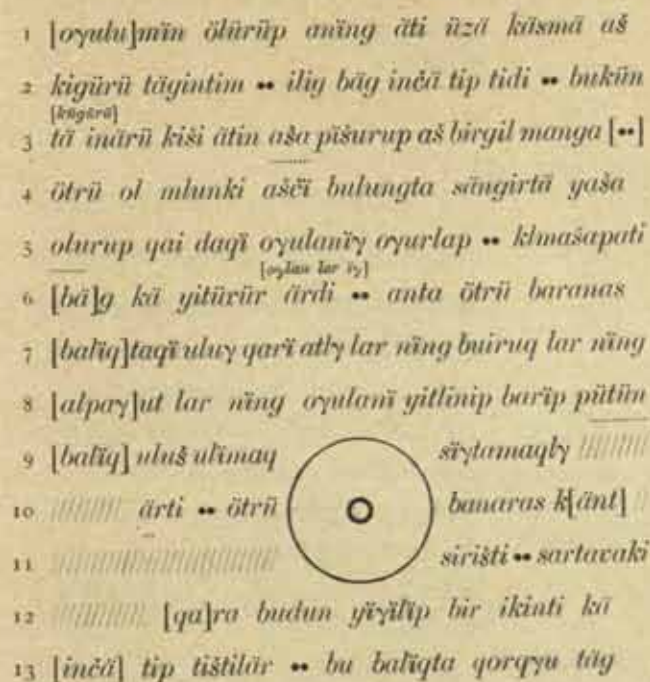 1 [oγulu]mïn ölürüp anïng äti üzä käsmä aš
2 kigürü tägintim •• ilig bäg inčä tip tidi •• bukün
[kügürü]
3 tä inärü kiši ätin aša pïšurup aš birgil manga [••]
4 ötrü ol mlunki aščï bulungta sängirtä yaša
5 olurup qai daqï oγulanïγ oγurlap •• klmašapati
[oγlan lar ïγ]
6 [bä]g kä yitürür ärdi •• anta ötrü baranas
7 [balïq]taqï uluγ qarï atlγ lar nïng buiruq lar nïng
8 [alpaγ]ut lar nïng oγulanï yitlinip barïp pütün
9 [balïq] uluš ulïmaq sïγtamaqlγ
10 ärti •• ötrü banaras k[änt]
11 sirišti •• sartavaki
12 [qa]ra budun yïγïlïp bir ikinti kä
13 [inčä] tip tištilär •• bu balïqta qorqγu täg